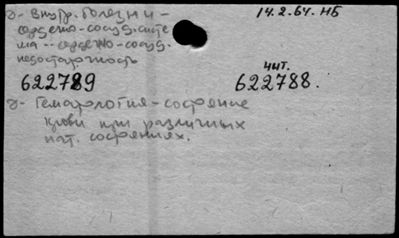 д- Внутр. болезни - 14.2.64. НБ
сердечно-сосуд. систе
ма -- сердечно-сосуд.
недостаточность
чит.
622789 622788.
д- Гематология - состояние
крови при различных
пат. состояниях.